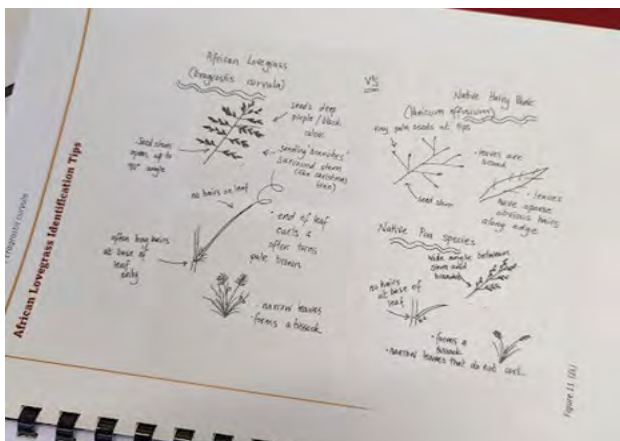 African Lovegrass Identification Tips
African Lovegrass
(Eragrostis curvula)
seeds deep
purple/black
colour
Seed stems
open, up to
90° angle
seeding 'branches'
surround stem
(like christmas
tree)
no hairs on leaf
often long hairs
at base of
leaf
only
• end of leaf
curls &
often turns
pale brown
• narrow leaves
• forms a tussock
VS
Native Hairy Panic
(Panicum effusum)
tiny pale seeds at tips
seed stem
• leaves are
broad
• leaves
have sparse
obvious hairs
along edge
Native Poa species
wide angle between
stem and
branches
no hairs
at base of
leaf
• forms a
tussock
• narrow leaves that do not curl
Figure 11